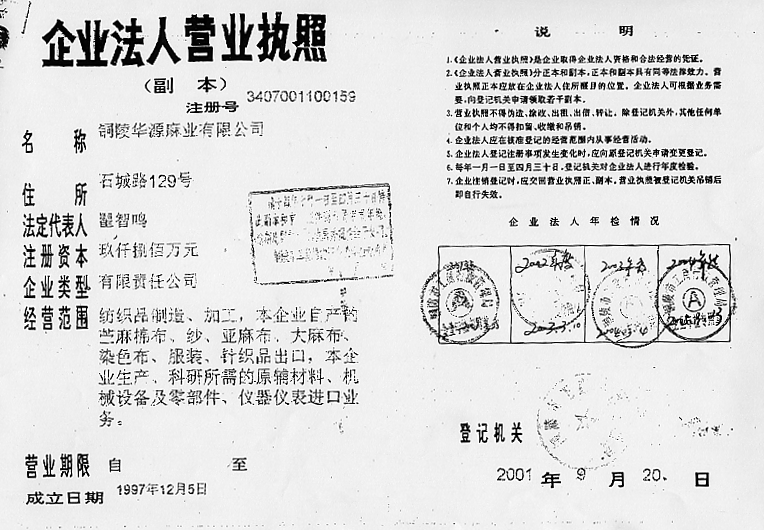 企业法人营业执照
（副 本）
注册号 3407001100159
名 称 铜陵华源麻业有限公司
住 所 石城路129号
法定代表人 智鸣
注册资本 玖仟捌佰万元
企业类型 有限责任公司
经营范围 纺织品制造、加工，本企业自产的
苎麻棉布、纱、亚麻布、大麻布、
染色布、服装、针织品出口，本企
业生产、科研所需的原辅材料、机
械设备及零部件、仪器仪表进口业
务。
营业期限 自 至
成立日期 1997年12月5日
说 明
1.《企业法人营业执照》是企业取得企业法人资格和合法经营的凭证。
2.《企业法人营业执照》分正本和副本，正本和副本具有同等法律效力。营
业执照正本应放在企业法人住所醒目的位置。企业法人可根据业务需
要，向登记机关申请领取若干副本。
3.营业执照不得伪造、涂改、出租、出借、转让。除登记机关外，其他任何单
位和个人均不得扣留、收缴和吊销。
4.企业法人应在核准登记的经营范围内从事经营活动。
5.企业法人登记注册事项发生变化时，应向原登记机关申请变更登记。
6.每年一月一日至四月三十日，登记机关对企业法人进行年度检验。
7.企业法人注销登记时，应交回营业执照正、副本。营业执照被登记机关吊销后
即自行失效。
企业法人年检情况
2002年度 2003年度 2004年度
2003.3.10
登记机关
2001 年 9 月 20 日